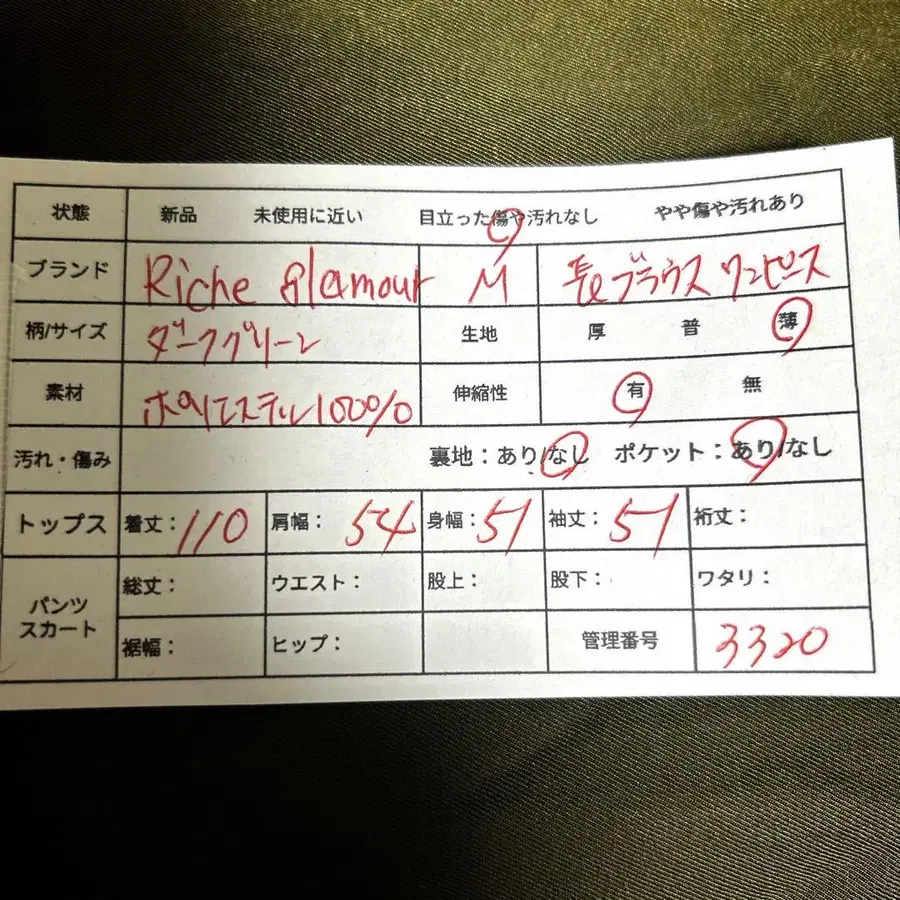 状態 新品 未使用に近い 目立った傷や汚れなし やや傷や汚れあり
ブランド Riche glamour M 長ブラウスワンピース
柄/サイズ ダークグリーン 生地 厚 普 薄
素材 ポリエステル100% 伸縮性 有 無
汚れ・傷み 裏地：あり/なし ポケット：あり/なし
トップス 着丈：110 肩幅：54 身幅：51 袖丈：51 裄丈：
パンツ スカート 総丈： ウエスト： 股上： 股下： ワタリ：
裾幅： ヒップ： 管理番号 3320